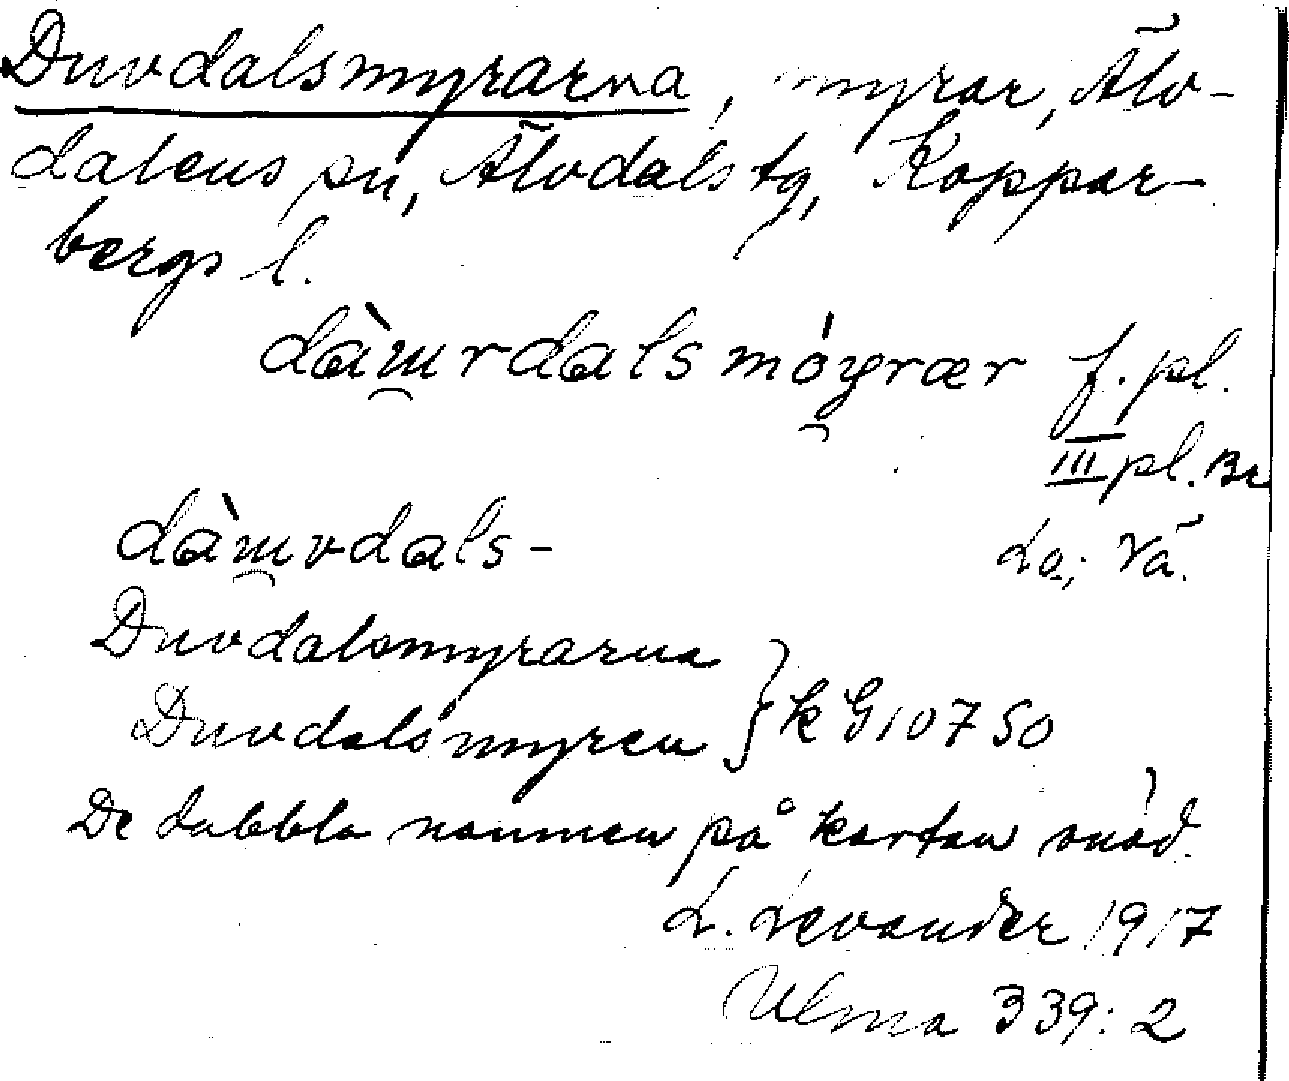 Duvdalsmyrarna, myrar, Älv-
dalens sn, Älvdals tg, Koppar-
bergs l.
dàɯ̯rdalsmóy̯rær f. pl.
III pl. Br
dàɯ̯vdals- Lo; Vä.
Duvdalsmyrarna
Duvdalsmyren } k G 107 50
De dubbla namnen på kartan onöd.
L. Levander 1917
Ulma 339:2